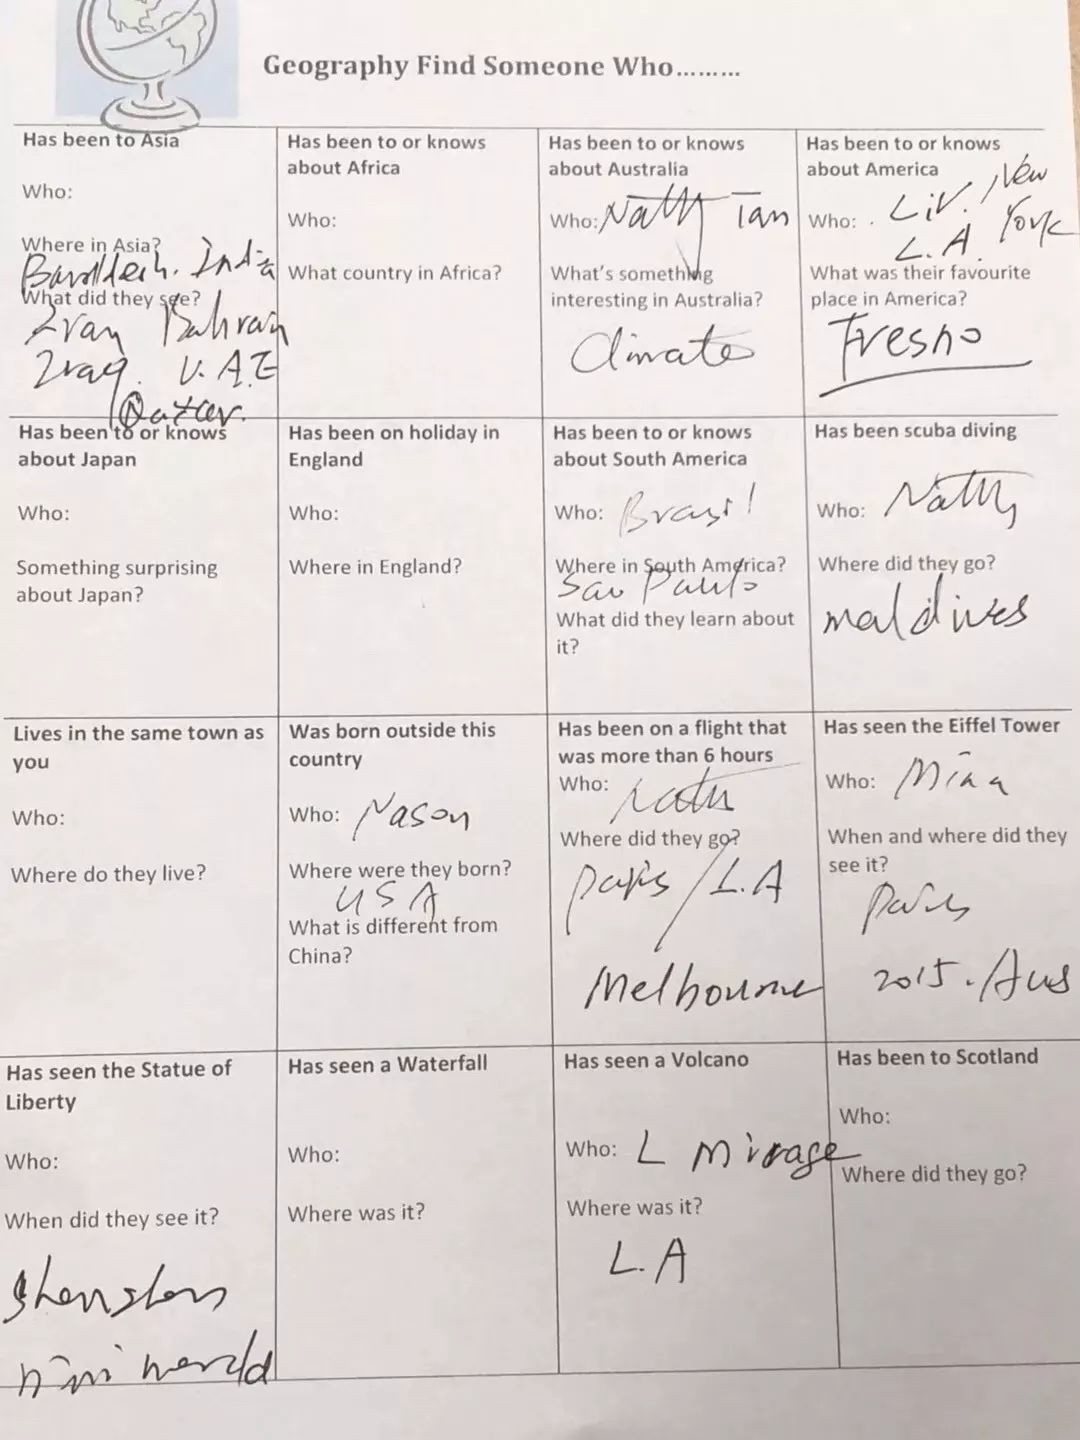 Geography Find Someone Who………
Has been to Asia
Who:
Where in Asia?
India
What did they see?
Iran Bahrain
Iraq. U.A.E
Qatar.
Has been to or knows
about Africa
Who:
What country in Africa?
Has been to or knows
about Australia
Who: Natty Tan
What's something
interesting in Australia?
Climate
Has been to or knows
about America
Who: Liv. New
L.A. York
What was their favourite
place in America?
Fresno
Has been to or knows
about Japan
Who:
Something surprising
about Japan?
Has been on holiday in
England
Who:
Where in England?
Has been to or knows
about South America
Who: Brasil
Where in South America?
Sao Paulo
What did they learn about
it?
Has been scuba diving
Who: Natty
Where did they go?
maldives
Lives in the same town as
you
Who:
Where do they live?
Was born outside this
country
Who: Nason
Where were they born?
USA
What is different from
China?
Has been on a flight that
was more than 6 hours
Who:
Where did they go?
paris / L.A
Melbourne
Has seen the Eiffel Tower
Who: Mina
When and where did they
see it?
Paris
2015. Aus
Has seen the Statue of
Liberty
Who:
When did they see it?
Has seen a Waterfall
Who:
Where was it?
Has seen a Volcano
Who: L Mirage
Where was it?
L.A
Has been to Scotland
Who:
Where did they go?